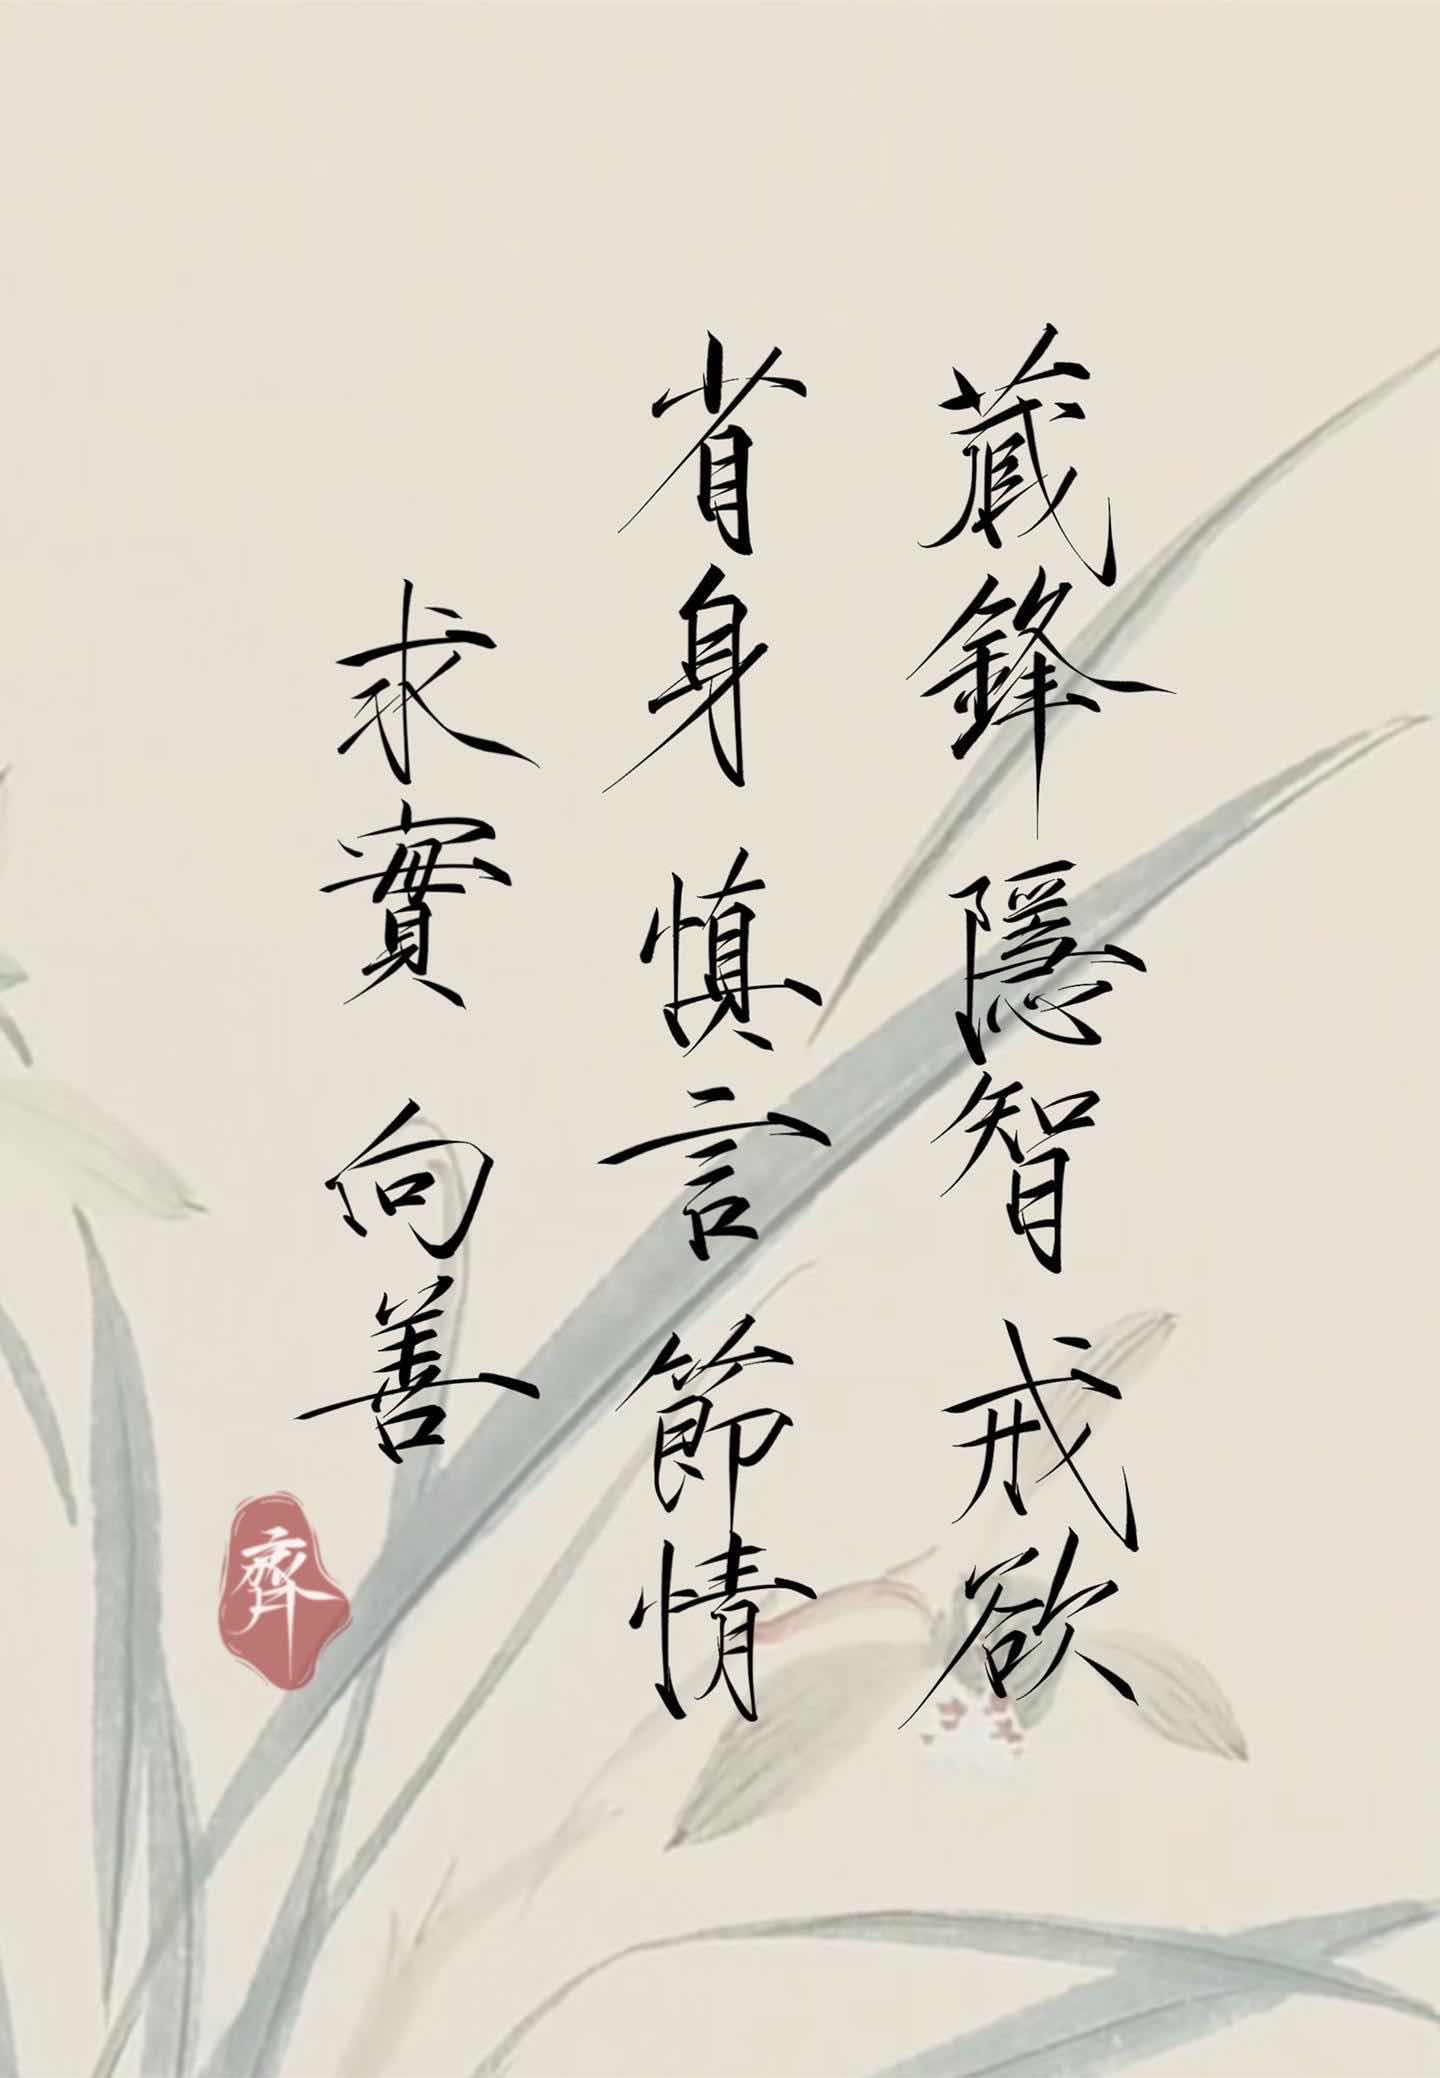 藏鋒 隱智 戒欲
省身 慎言 節情
求實 向善
齊